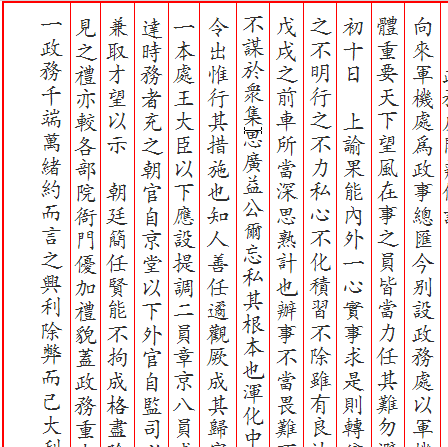 向來軍機處為政事總匯今別設政務處以軍機
體重要天下望風在事之員皆當力任其難勿避
初十日　上諭果能內外一心實事求是則轉
之不明行之不力私心不化積習不除雖有良法
戊戌之前車所當深思熟計也辦事不當畏難
不謀於衆集思廣益公爾忘私其根本也渾化中
令出惟行其措施也知人善任邇觀厥成其歸
一本處王大臣以下應設提調二員章京八員
達時務者充之朝官自京堂以下外官自監司
兼取才望以示　朝廷簡任賢能不拘成格盡除
見之禮亦較各部院衙門優加禮貌蓋政務重
一政務千端萬緒約而言之興利除弊而已大利